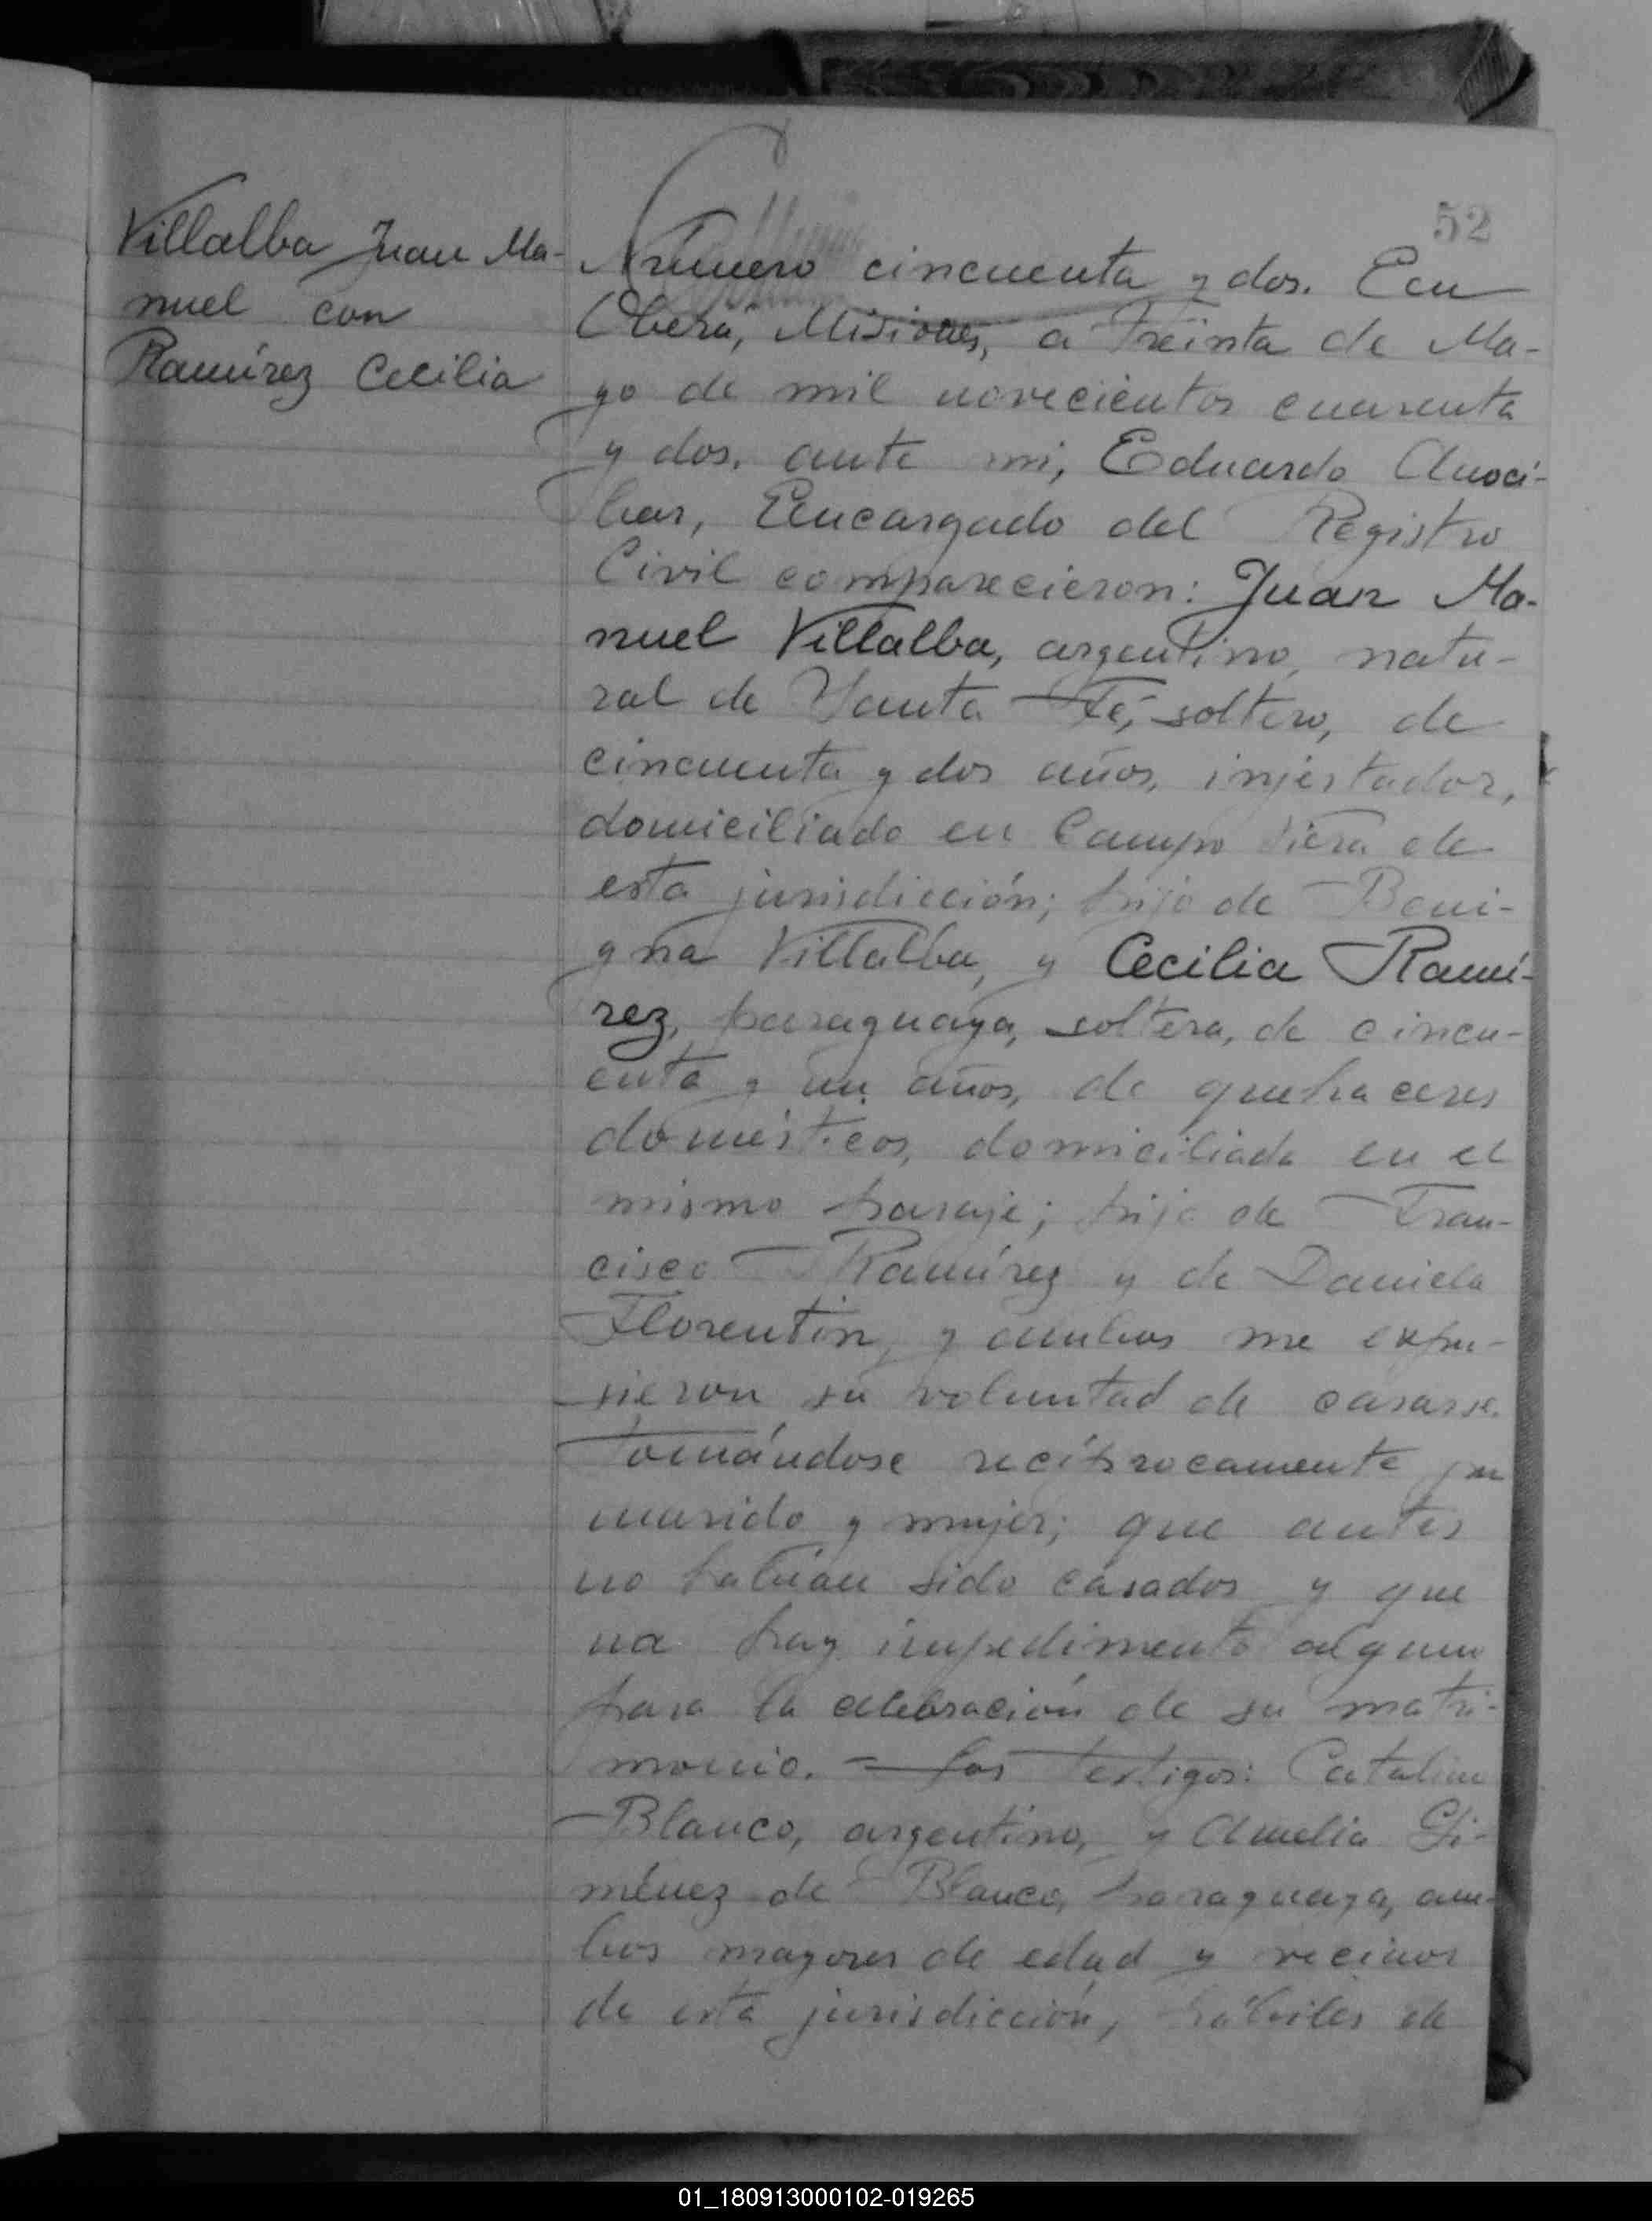 52
Villalba Juan Ma-
nuel con
Ramírez Cecilia
Número cincuenta y dos. En
Oberá, Misiones, a treinta de Ma-
yo de mil novecientos cuarenta
y dos, ante mi, Eduardo Anocí-
bar, Encargado del Registro
Civil comparecieron: Juan Ma-
nuel Villalba, argentino, natu-
ral de Santa Fé, soltero, de
cincuenta y dos años, injertador,
domiciliado en Campo Viera de
esta jurisdicción; hijo de Beni-
gna Villalba, y Cecilia Ramí-
rez, paraguaya, soltera, de cincu-
enta y un años, de quehaceres
domésticos, domiciliada en el
mismo paraje; hija de Fran-
cisco Ramírez y de Daniela
Florentin, y ambos me expu-
sieron su voluntad de casarse.
tomándose recíprocamente por
marido y mujer; que antes
no habían sido casados y que
no hay impedimento alguno
para la celebración de su matri-
monio. = Los testigos: Catalino
Blanco, argentino, y Amelia Gi-
ménez de Blanco, paraguaya, am-
bos mayores de edad y vecinos
de esta jurisdicción, hábiles de
01_180913000102-019265